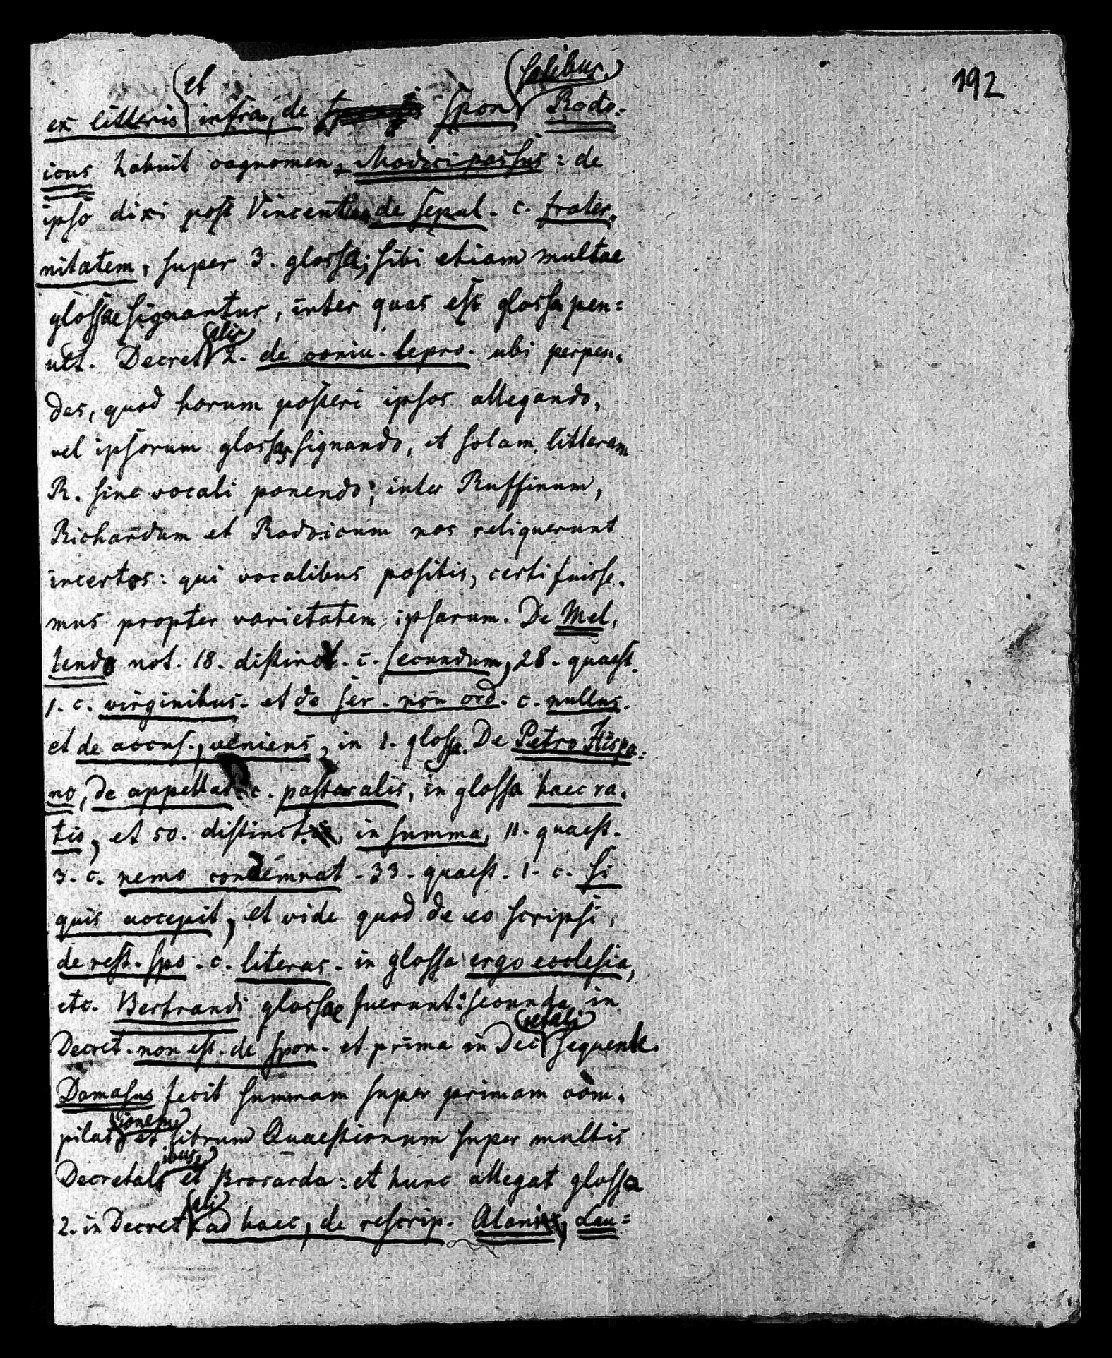 192
ex litteris et infra, de Sponsalibus. Rodo-
icus habuit cognomen Modici passus: de
ipso dixi post Vincentium de Sepul. c. frater,
nitatem, super 3. glossa; sibi etiam multae
glossae signantur, inter quas est glossa pen=
ult. Decretalis 2. de coniu. lepro. ubi perpen,
des, quod horum posteri ipsos allegando,
vel ipsorum glossas signando, et solam litteram
R. sine vocali ponendo; inter Ruffinum,
Richardum et Rodoicum nos reliquerunt
incertos: qui vocalibus positis, certi fuisse,
mus propter varietatem ipsarum. De Mel,
lendo not. 18. distinct. c. secundum, 28. quaest.
1. c. virginibus. et de ser. non ord. c. nullus.
et de accus., veniens, in 1. glossa. De Petro Hispa-
no, de appellat. c. pastoralis, in glossa haec ra,
tio, et 50. distinct. in summa, 11. quaest.
3. c. nemo condemnat. 33. quaest. 1. c. si
quis accepit, et vide quod de eo scripsi,
de rest. spo. c. literas. in glossa ergo ecclesia,
etc. Bertrandi glossae fuerunt: secunda in
Decret. non est. de spon. et prima in Decretali sequente.
Damasus fecit summam super primam com,
pilationem et librum Quaestionum super multis
Decretalibus, et Brocarda: et hunc allegat glossa
2. in Decretali ad haec, de rescrip. Alani, Lau=